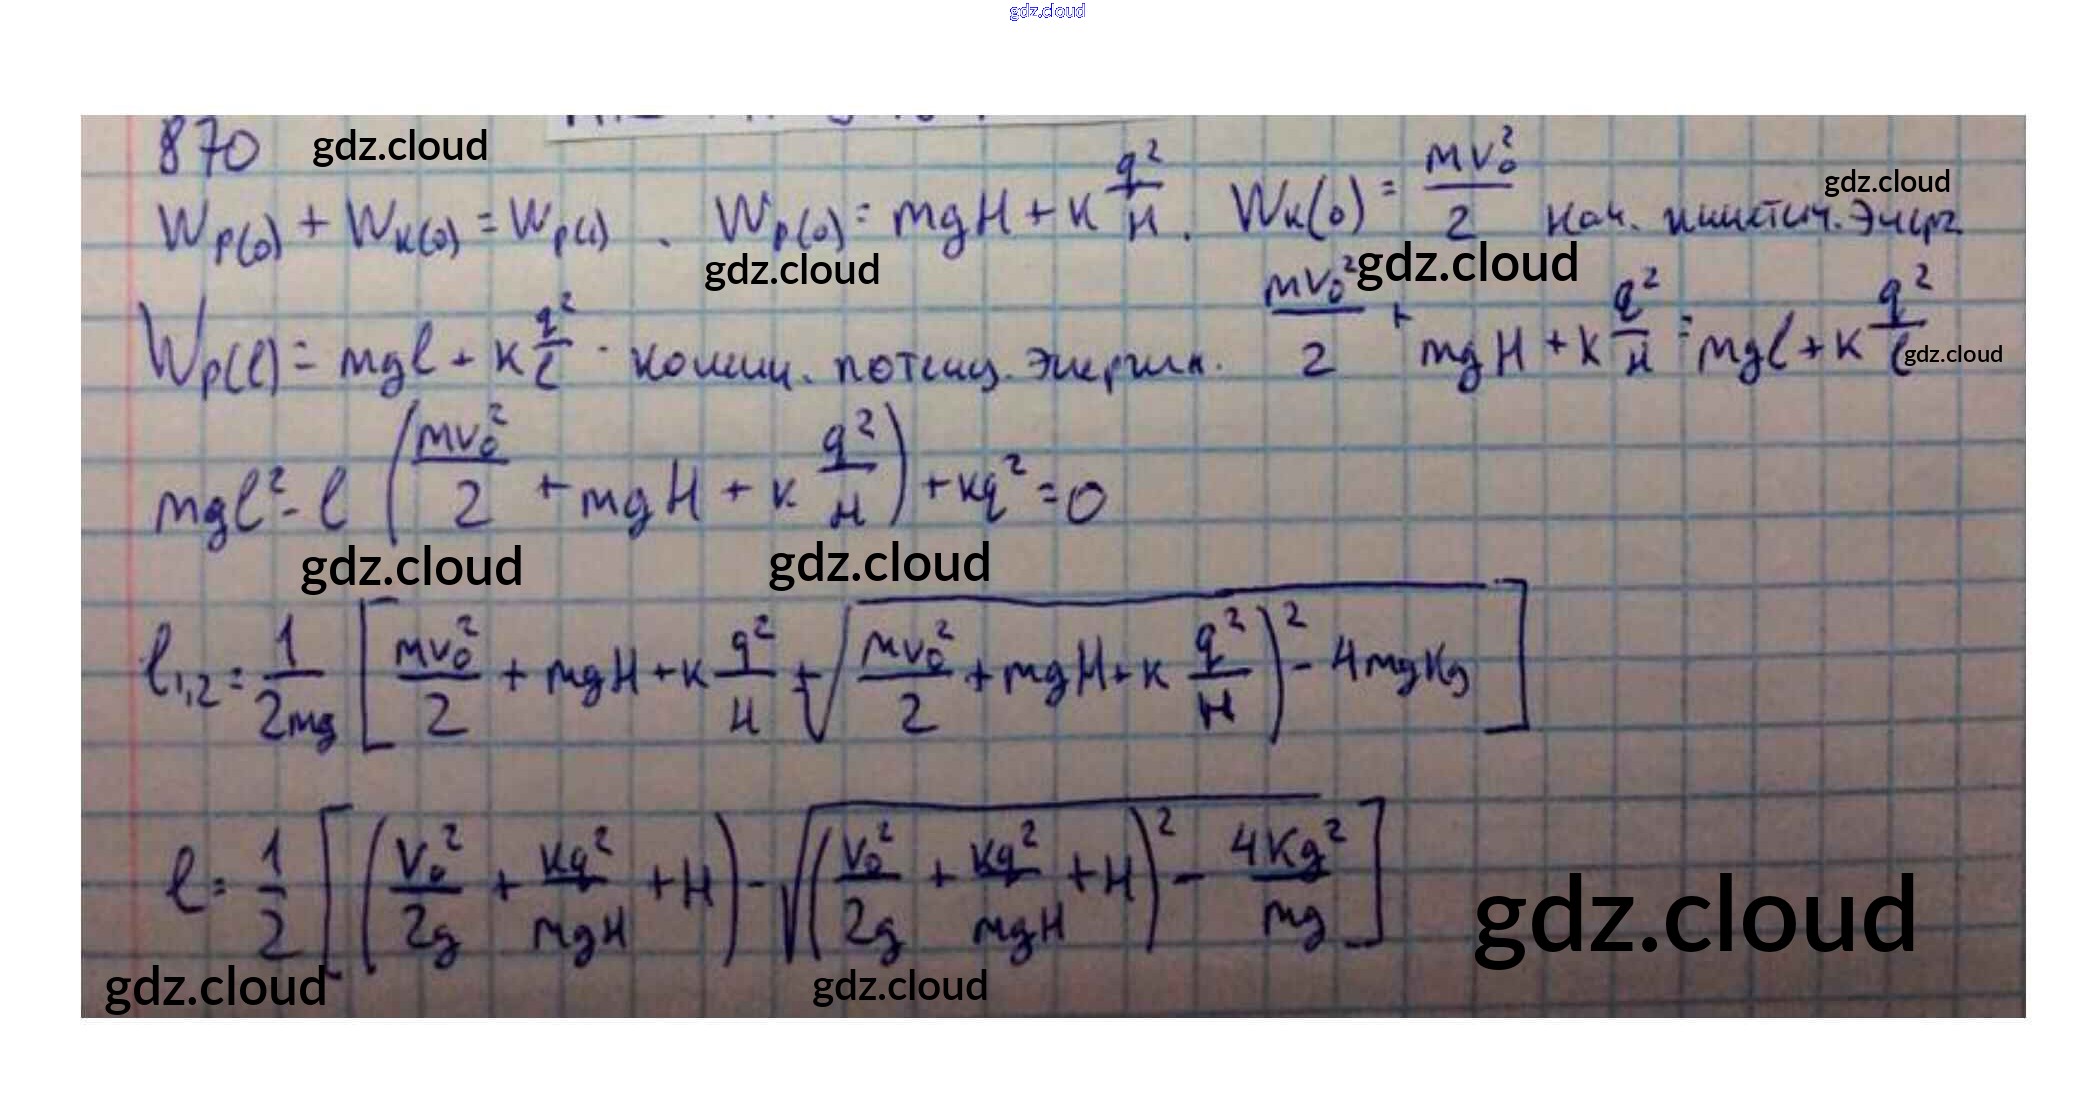 gdz.cloud
870 gdz.cloud
W_P(0) + W_K(0) = W_P(l). W_P(0) = mgH + K q²/H. W_K(0) = mv₀²/2 нач. кинетич. энерг gdz.cloud
gdz.cloud gdz.cloud
W_P(l) = mgl + K q²/l - конечн. потенц. энергия. mv₀²/2 + mgH + K q²/H = mgl + K q²/l gdz.cloud
mgl² - l (mv₀²/2 + mgH + K q²/H) + Kq² = 0
gdz.cloud gdz.cloud
l₁,₂ = 1/2mg [mv₀²/2 + mgH + K q²/H ± √(mv₀²/2 + mgH + K q²/H)² - 4mgKq]
l = 1/2 [(v₀²/2g + Kq²/mgH + H) - √((v₀²/2g + Kq²/mgH + H)² - 4Kq²/mg] gdz.cloud
gdz.cloud gdz.cloud